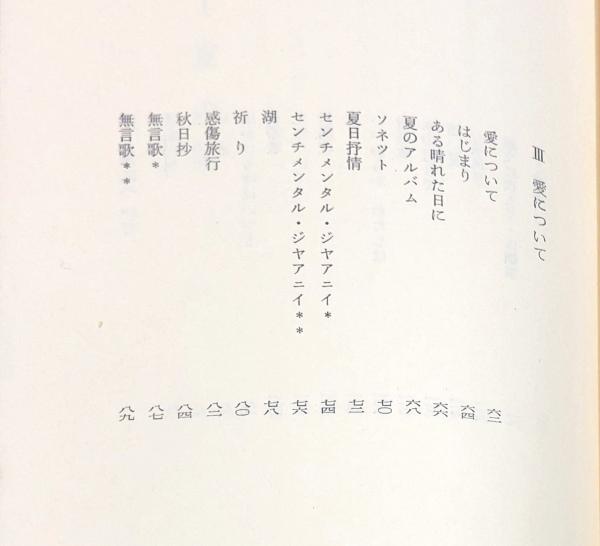 Ⅲ 愛について
愛について 六二
はじまり 六四
ある晴れた日に 六六
夏のアルバム 六八
ソネツト 七〇
夏日抒情 七二
センチメンタル・ジヤアニイ＊ 七四
センチメンタル・ジヤアニイ＊＊ 七六
湖 七八
祈り 八〇
感傷旅行 八二
秋日抄 八四
無言歌＊ 八七
無言歌＊＊ 八九